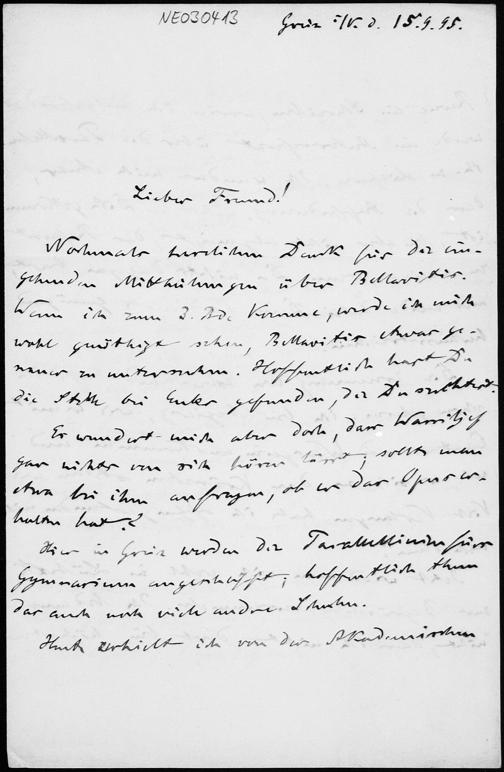 NE030413
Greiz i/V. d. 15.9.95.
Lieber Freund!
Nochmals herzlichen Dank für die ein-
gehenden Mittheilungen über Bellavitis.
Wenn ich zum 3. Bde. komme, werde ich mich
wohl genöthigt sehen, Bellavitis etwas ge-
nauer zu untersuchen. Hoffentlich hast Du
die Stelle bei Euler gefunden, die Du suchtest.
Es wundert mich aber doch, dass Wassiljef
gar nichts von sich hören lässt; sollte man
etwa bei ihm anfragen, ob er das Opus er-
halten hat?
Hier in Greiz werden die Parallellinien fürs
Gymnasium angeschafft; hoffentlich thun
das auch noch viele andre Schulen.
Heute erhielt ich von der Akademischen